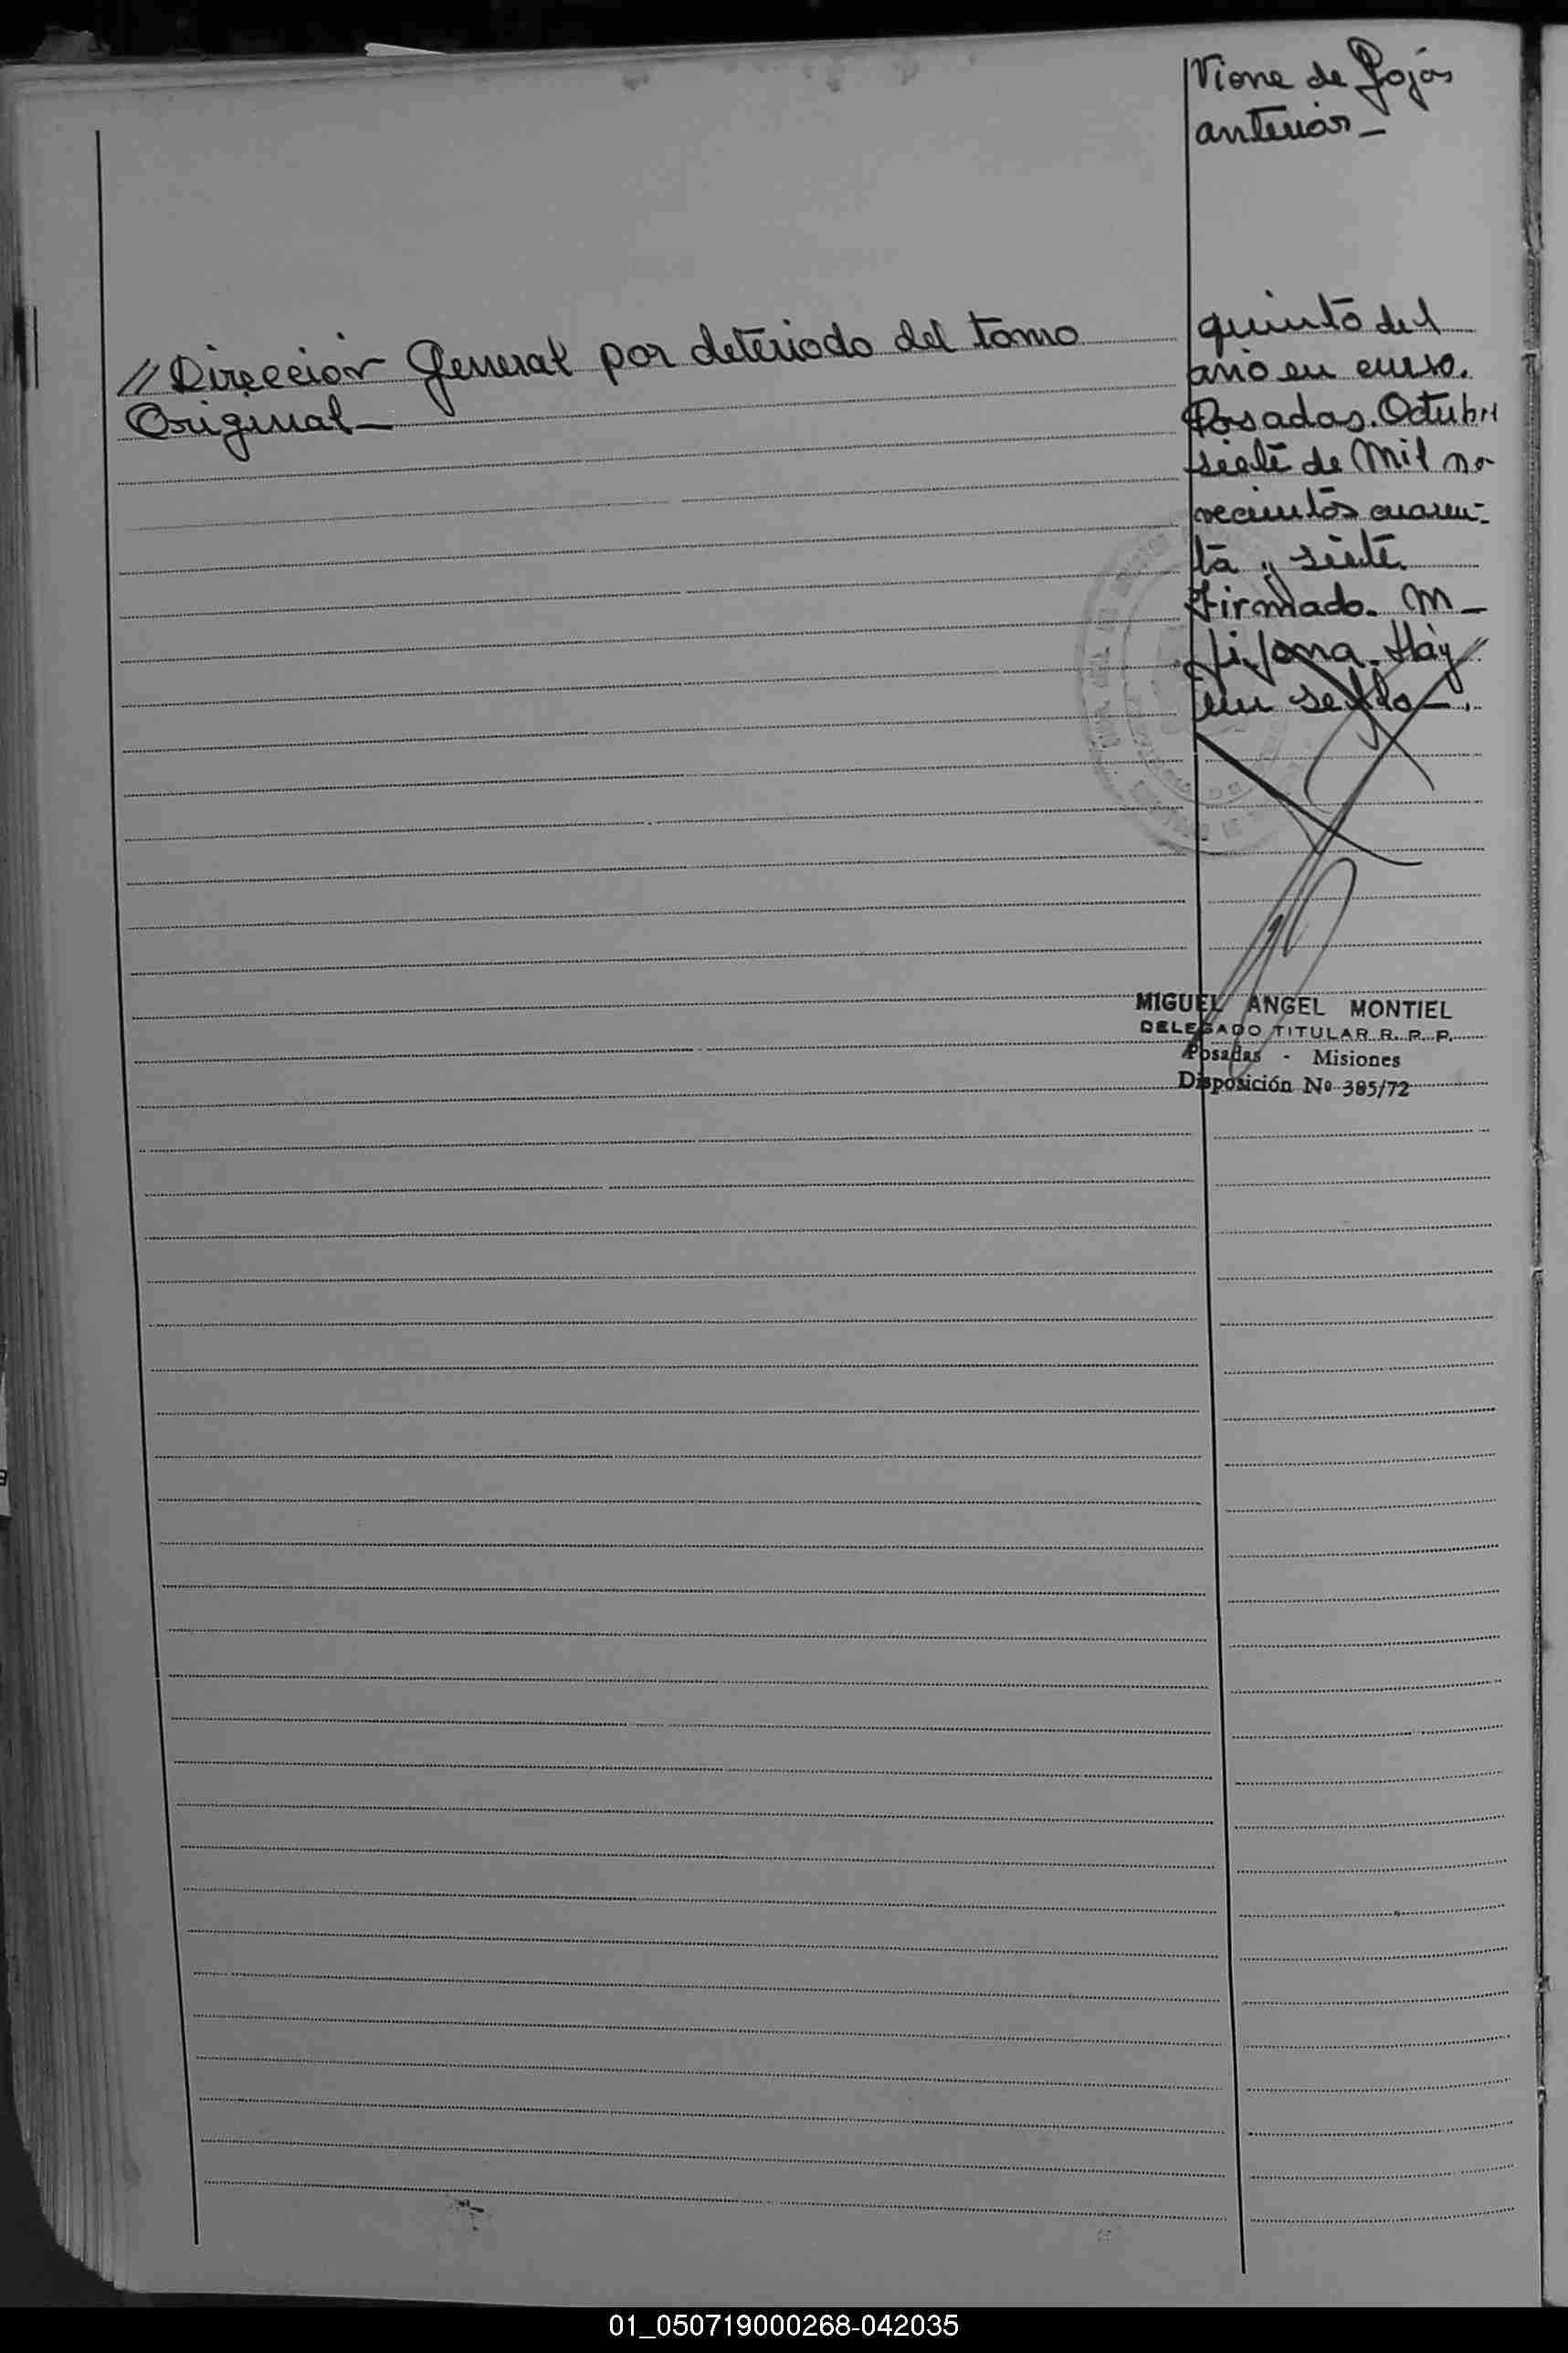 Viene de Fojas
anterior_
// Direccion General por deteriodo del tomo
Original_
quinto del
año en curso.
Posadas. Octubre
siete de Mil no
vecientos cuaren-
ta y siete.
Firmado. M_
Hay
un sello_.
MIGUEL ANGEL MONTIEL
DELEGADO TITULAR R. P. P.
Posadas - Misiones
Disposición Nº 385/72
01_050719000268-042035